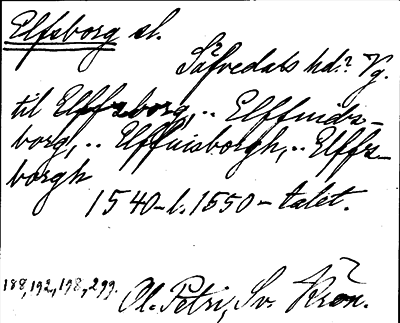 Elfsborg sl.
Säfvedals hd.? Vg.
til Elffzborg, .. Elffuids-
borg, .. Elffuisborgh, .. Elffz-
borgh
1540-t. 1550-talet.
188, 192, 198, 299. Ol. Petri, Sv. Krön.